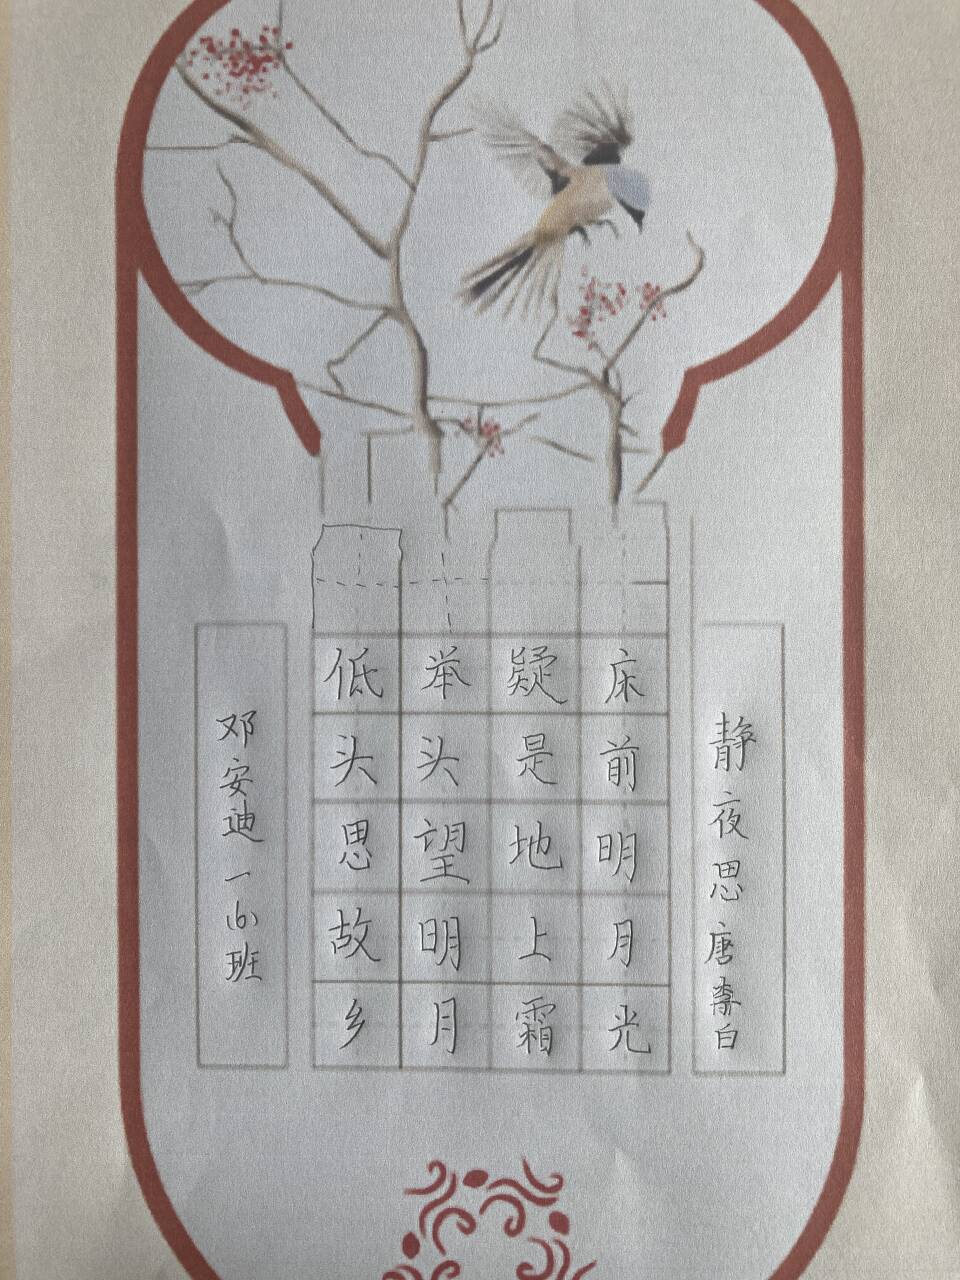 静夜思唐李白
床前明月光
疑是地上霜
举头望明月
低头思故乡
邓安迪一(6)班